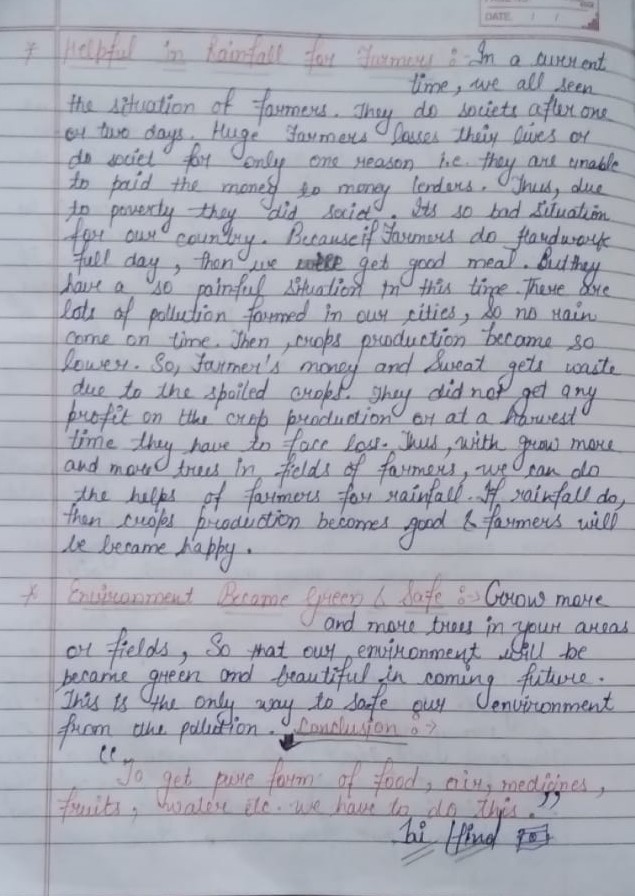 DATE / /
* Helpful in Rainfall for Farmers :- In a current
time, we all seen
the situation of farmers. They do societs after one
or two days. Huge Farmers losses their lives or
do societ for only one reason i.e. they are unable
to paid the money to money lenders. Thus, due
to poverty they did socid. Its so bad situation
for our country. Because if Farmers do Hardwork
full day, then we get good meal. But they
have a so painful situation in this time. There are
lots of pollution formed in our cities, so no rain
come on time. Then, crops production became so
lower. So, Farmer's money and Sweat gets waste
due to the spoiled crops. They did not get any
profit on the crop production or at a harvest
time they have to face loss. Thus, with grow more
and more trees in fields of farmers, we can do
the helps of farmers for rainfall. If rainfall do,
then crops production becomes good & farmers will
be became happy.
* Environment Became Green & Safe :-> Grow more
and more trees in your areas
or fields, So that our environment will be
became green and beautiful in coming future.
This is the only way to safe our environment
from the pollution. Conclusion :->
"To get pure form of food, air, medicines,
fruits, water etc. we have to do this."
Jai Hind